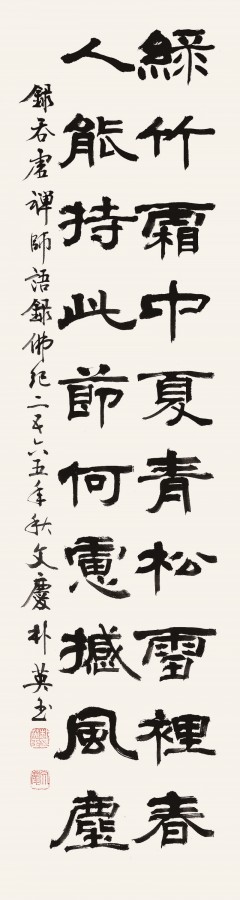 綠竹霜中夏青松雪裡春
人能持此節何慮撼風塵
錄吞虛禪師語錄佛紀二千六五年秋文慶朴英玉